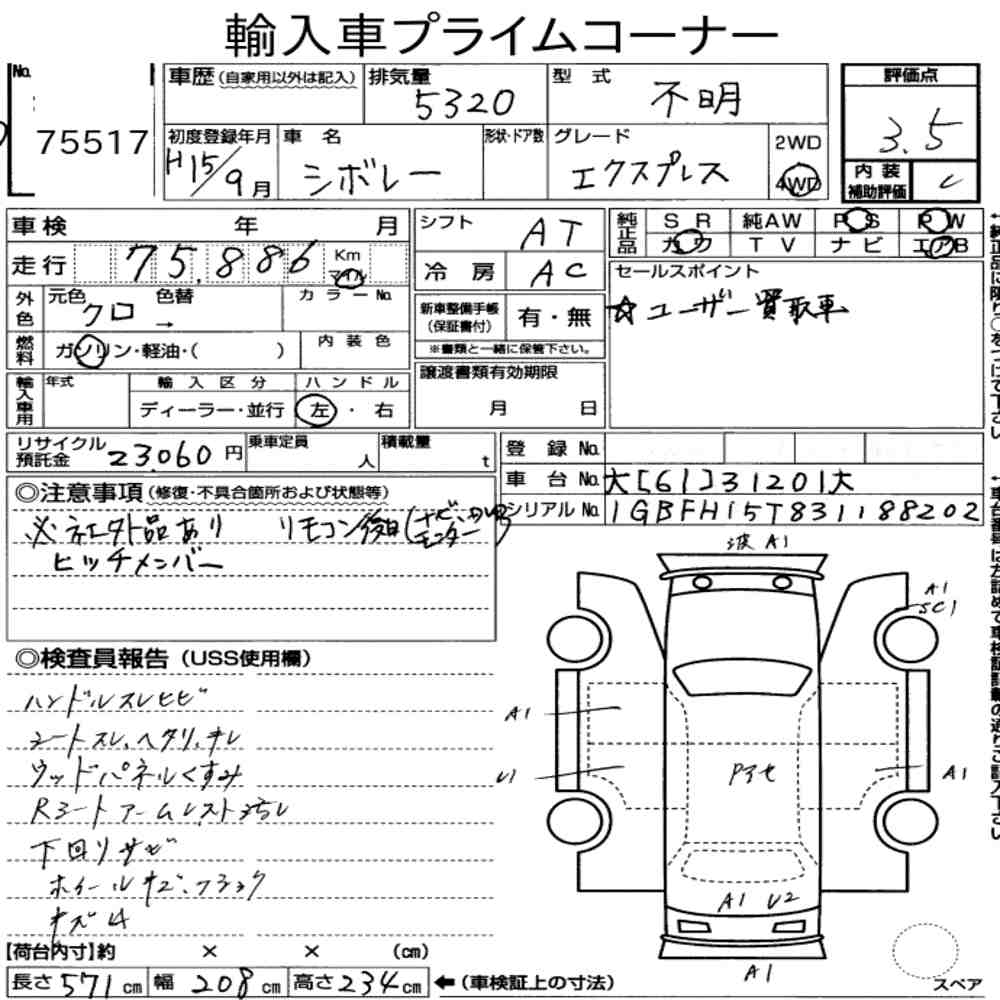 輸入車プライムコーナー
No. 75517
車歴(自家用以外は記入) 排気量 5320 型式 不明 評価点 3.5
初度登録年月 H15/9月 車名 シボレー 形状・ドア数 グレード エクスプレス 2WD 4WD 内装補助評価 C
車検 年 月 シフト AT 純正品 SR 純AW PS PW
走行 75,886 Km マイル 冷房 AC カワ TV ナビ エアB
外色 元色 クロ 色替 → カラーNo. 新車整備手帳(保証書付) 有・無 セールスポイント
☆ユーザー買取車
燃料 ガソリン・軽油・( ) 内装色 ※書類と一緒に保管下さい。
輸入車用 年式 輸入区分 ハンドル 譲渡書類有効期限
ディーラー・並行 左・右 月 日
リサイクル預託金 23,060円 乗車定員 人 積載量 t 登録No.
車台No. 大[61]31201大
◎注意事項(修復・不具合箇所および状態等) シリアルNo. 1GBFH15T831188202
※社外品あり リモコン後日(ナビ・モニター
ヒッチメンバー
波 A1
A1
SC1
◎検査員報告(USS使用欄)
ハンドルスレヒビ
シートスレ、ヘタリ、キレ
A1
ウッドパネルくすみ
U1 Pアセ A1
Rシートアームレスト
下回りサビ
ホイールキズ、
キズ
A1 U2
【荷台内寸】約 × × (cm)
A1
長さ571cm 幅208cm 高さ234cm ←(車検証上の寸法)
スペア